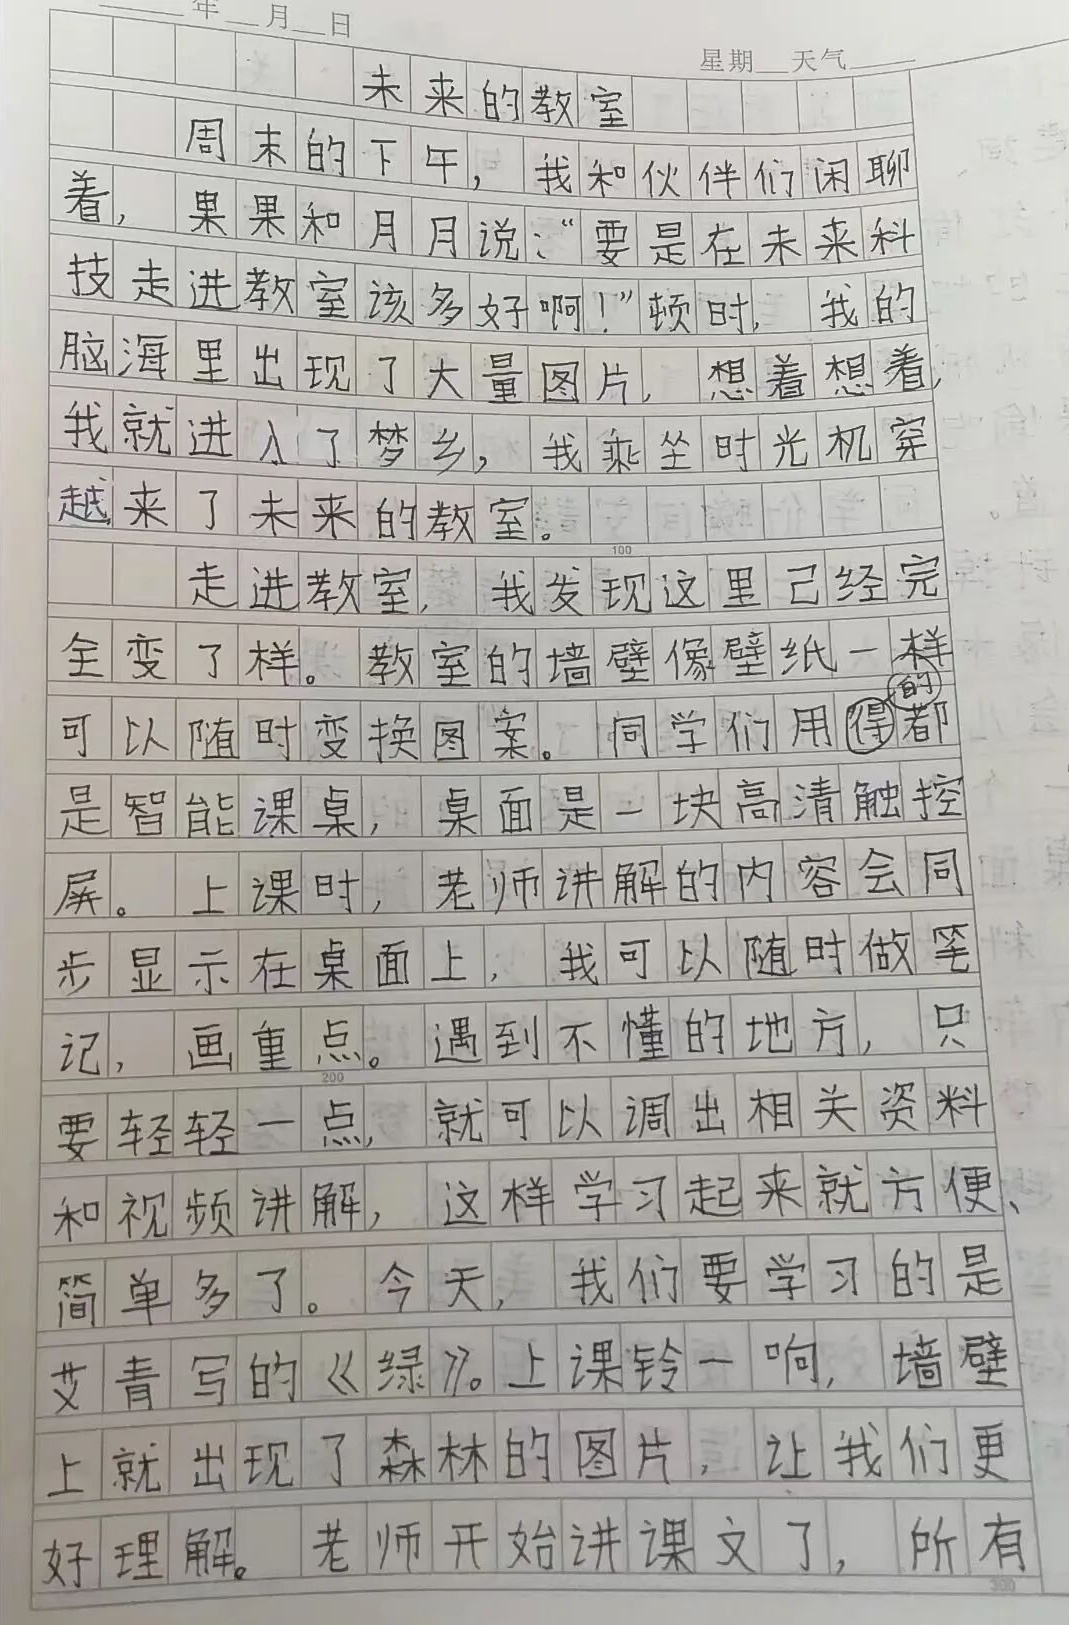 年__月__日
星期__天气
未来的教室
周末的下午，我和伙伴们闲聊
着，果果和月月说：“要是在未来科
技走进教室该多好啊！”顿时，我的
脑海里出现了大量图片，想着想着，
我就进入了梦乡，我乘坐时光机穿
越来了未来的教室。
100
走进教室，我发现这里己经完
全变了样。教室的墙壁像壁纸一样
可以随时变换图案。同学们用得都
的
是智能课桌，桌面是一块高清触控
屏。上课时，老师讲解的内容会同
步显示在桌面上，我可以随时做笔
记，画重点。遇到不懂的地方，只
200
要轻轻一点，就可以调出相关资料
和视频讲解，这样学习起来就方便、
简单多了。今天，我们要学习的是
艾青写的《绿》。上课铃一响，墙壁
上就出现了森林的图片，让我们更
好理解。老师开始讲课文了，所有
300